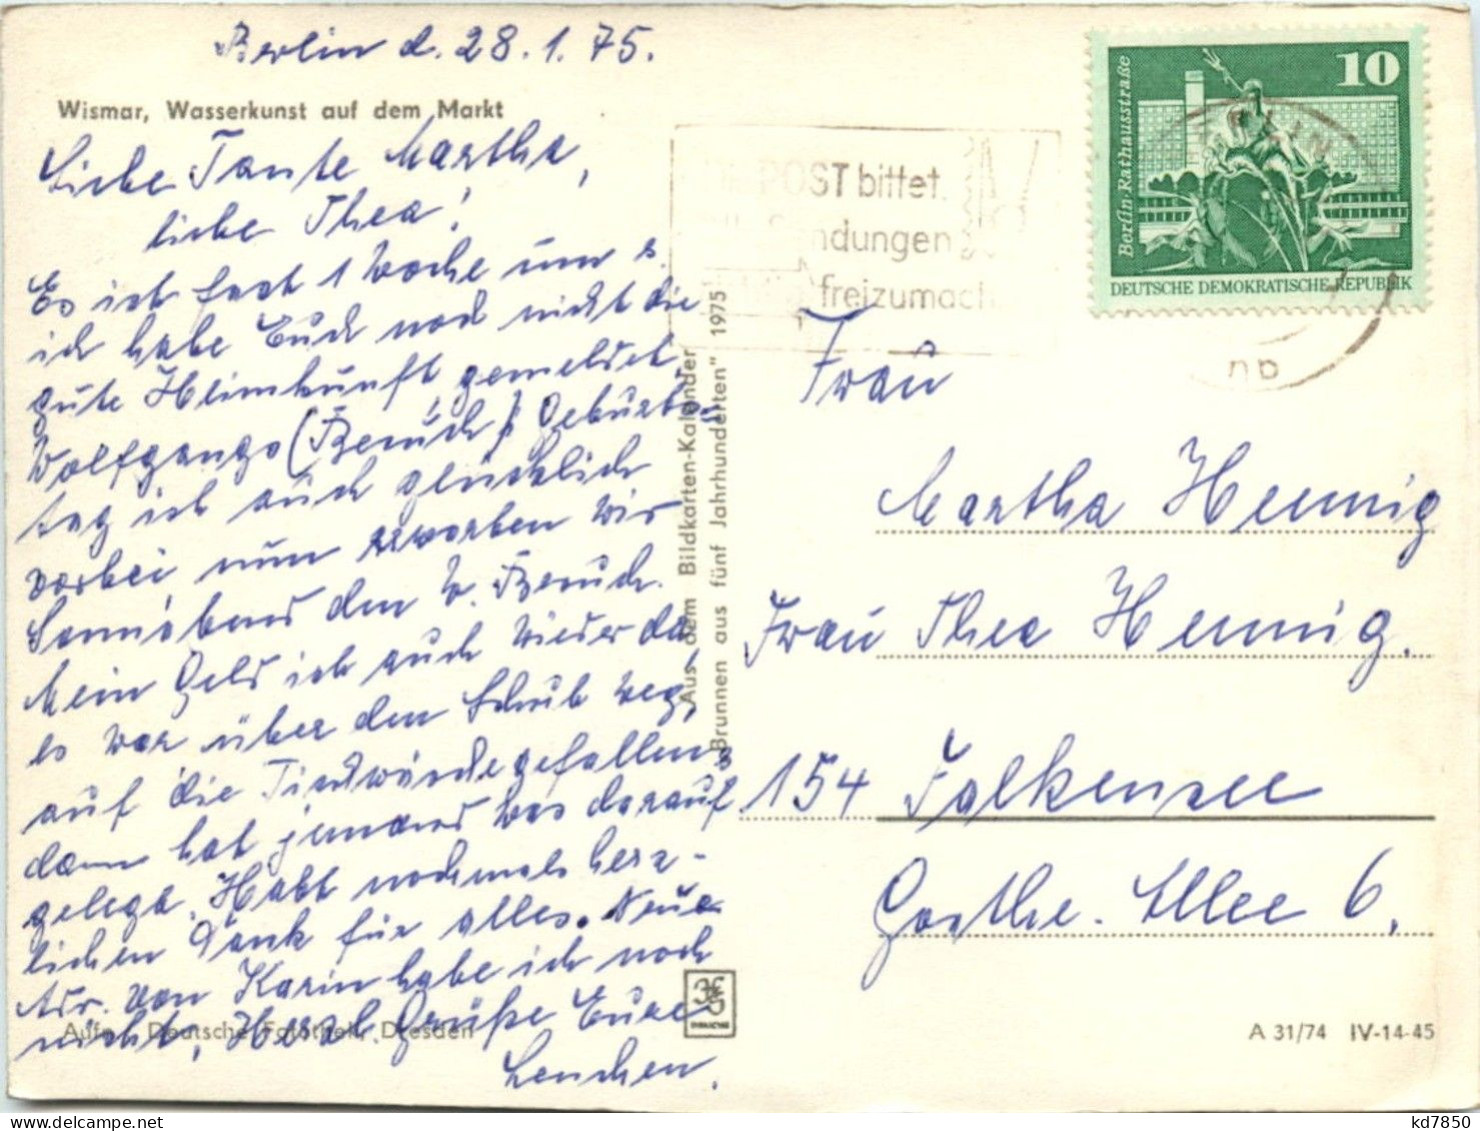 Berlin d. 28.1.75.
Wismar, Wasserkunst auf dem Markt
Liebe Tante Martha,
liebe Thea!
Es ist fast 1 Woche um u.
ich habe Euch noch nicht die
gute Heimkunft gemeldet.
Wolfgangs (Besuch) Geburts=
tag ist auch glücklich
vorbei, nun erwarten wir
Sonnabend den W. Besuch.
Mein Geld ist auch wieder da,
es war über den Schub weg,
auf die Tischwäsche gefallen u.
dann hat jemand was darauf
gelegt. Habt nochmals herz-
lichen Dank für alles. Neue
Adr. von Karin habe ich noch
nicht, Herzl. Grüße Eure
Lenchen.
Aufn. Deutsche Fotothek Dresden
Aus dem Bildkarten-Kalender
"Brunnen aus fünf Jahrhunderten" 1975
POST bittet,
Sendungen
freizumach
10
Berlin-Rathausstraße
DEUTSCHE DEMOKRATISCHE REPUBLIK
BERLIN
nb
Frau
Martha Hennig
Frau Thea Hennig.
154 Falkensee
Goethe-Allee 6.
A 31/74 IV-14-45
kd7850